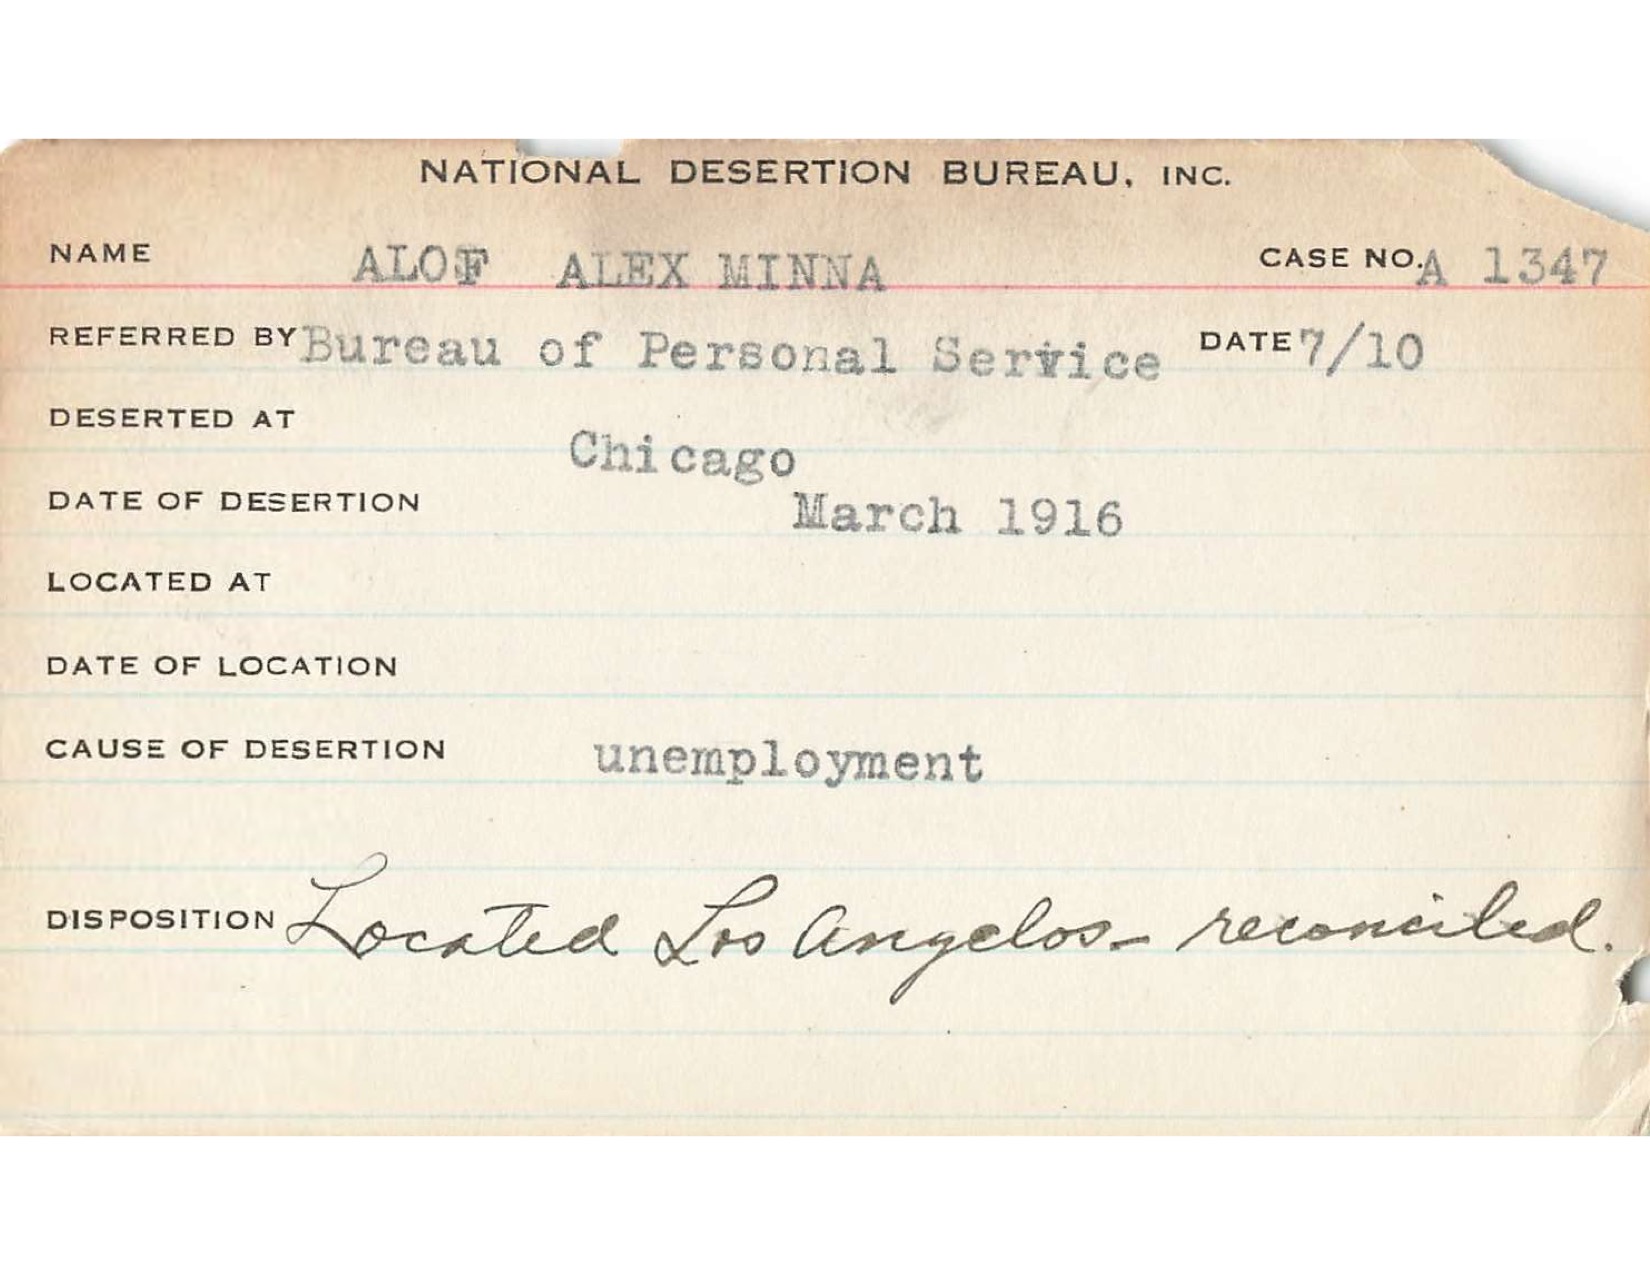 NATIONAL DESERTION BUREAU, INC.
NAME ALOF ALEX MINNA CASE NO. A 1347
REFERRED BY Bureau of Personal Service DATE 7/10
DESERTED AT Chicago
DATE OF DESERTION March 1916
LOCATED AT
DATE OF LOCATION
CAUSE OF DESERTION unemployment
DISPOSITION Located Los Angelos - reconciled.